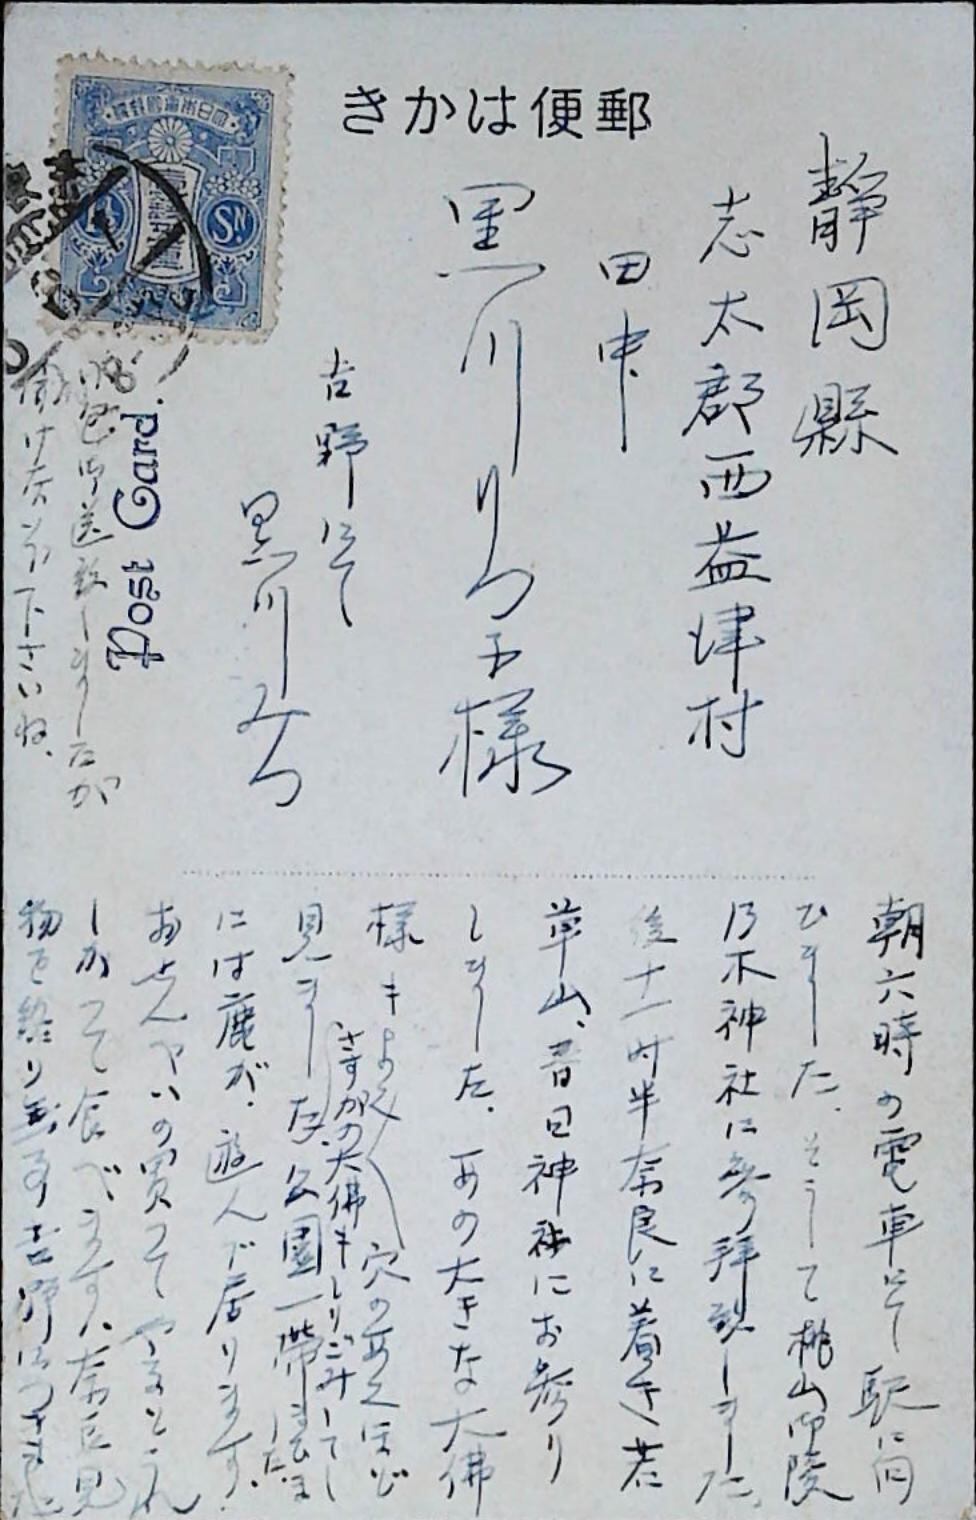 きかは便郵
静岡縣
志太郡西益津村
田中
黒川りつ子様
吉野にて
黒川みつ
Post Card.
御送致しましたが
下さいね、
朝六時の電車にて駅に向
ひました、そうして桃山御陵
乃木神社に参拝致しました、
後十一時半奈良に着き若
草山、春日神社にお参り
しました、あの大きな大佛
様もよく〱穴のあくほど
見ました さすがの大佛もしりごみしてしまひました 公園一帯
には鹿が、遊んで居ります、
おせんべいの買つてやるとうれ
しがつて食べます、奈良見
物を終り 吉野につきました